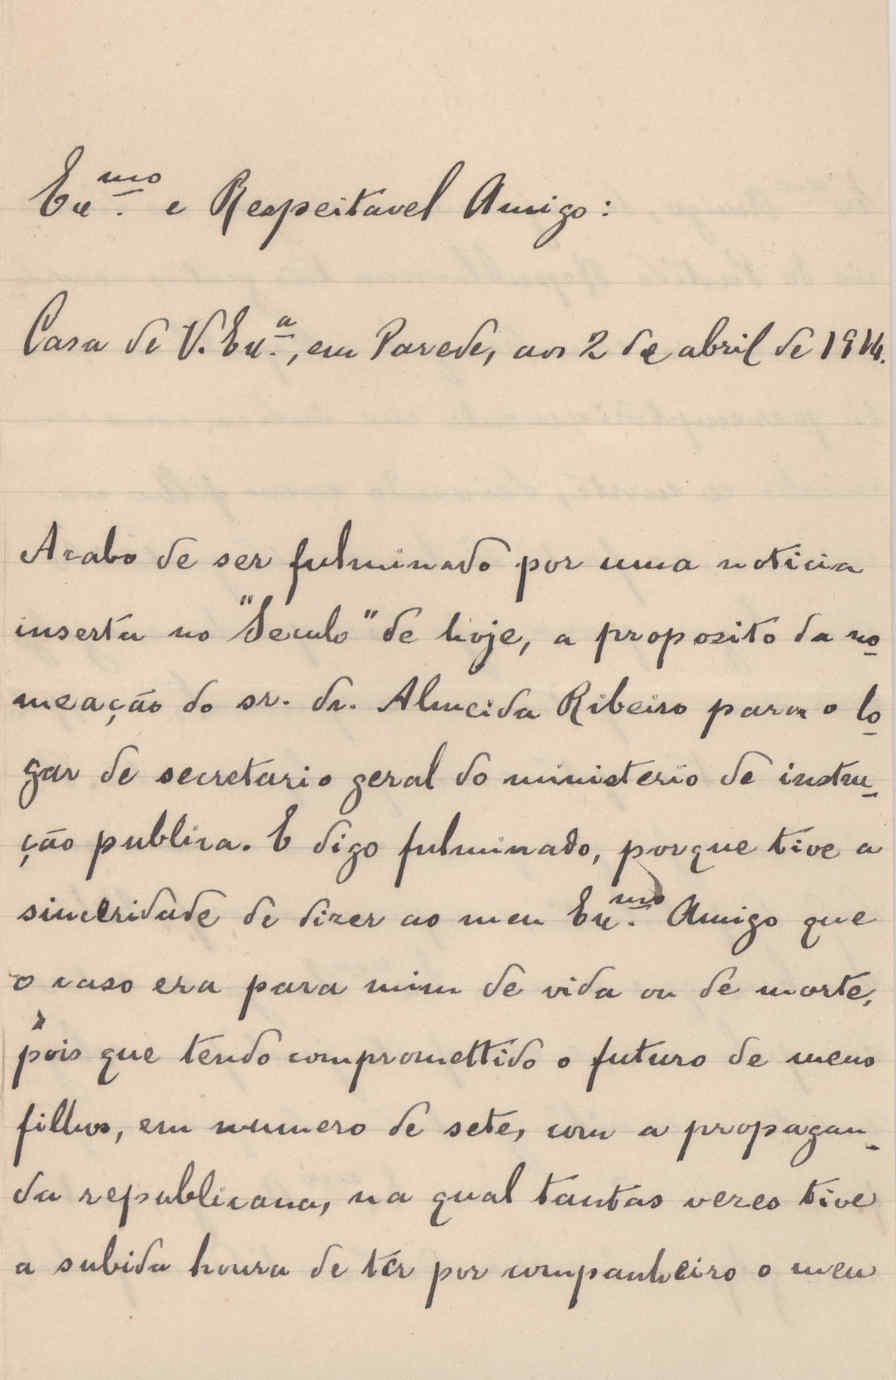 Ex.mo e Respeitavel Amigo:
Casa de V. Ex.a, em Parede, aos 2 de abril de 1914.
Acabo de ser fulminado por uma noticia
inserta no "Seculo" de hoje, a proposito da no-
meação do sr. dr. Almeida Ribeiro para o lo-
gar de secretario geral do ministerio de instru-
ção publica. E digo fulminado, porque tive a
sinceridade de dizer ao meu Ex.mo Amigo que
o caso era para mim de vida ou de morte,
pois que tendo compromettido o futuro de meus
filhos, em numero de sete, com a propagan-
da republicana, na qual tantas vezes tive
a subida honra de ter por companheiro o meu